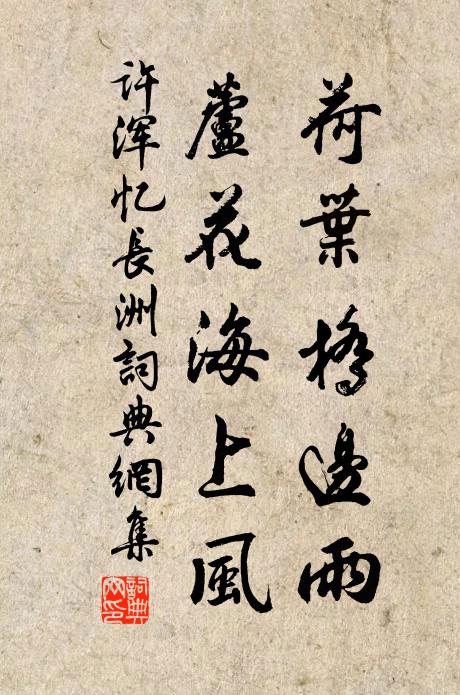 荷葉橋邊雨
蘆花海上風
许浑忆長洲詞典網集
詞典網印